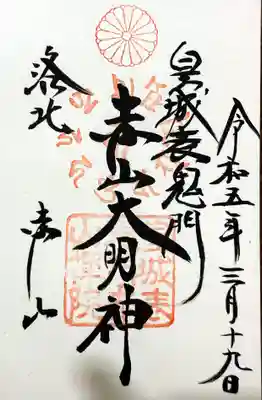 令和五年三月十九日
皇城表鬼門
赤山大明神
洛北
赤山